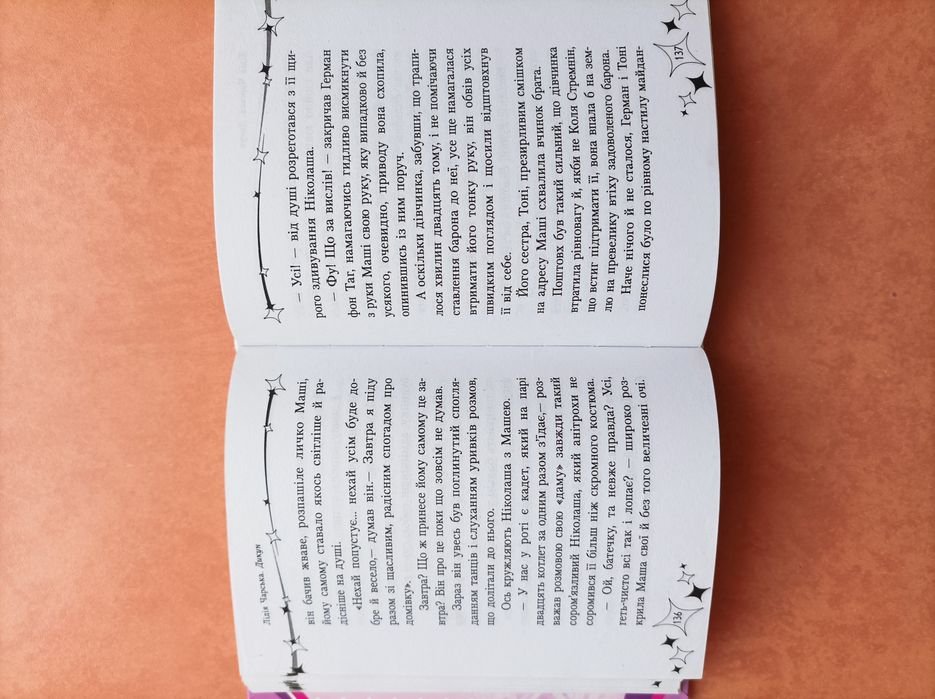 Лідія Чарська. Дикун
він бачив жваве, розпашіле личко Маші,
йому самому ставало якось світліше й ра-
дісніше на душі.
«Нехай попустує... нехай усім буде до-
бре й весело,— думав він.— Завтра я піду
разом зі щасливим, радісним спогадом про
домівку».
Завтра? Що ж принесе йому самому це за-
втра? Він про це поки що зовсім не думав.
Зараз він увесь був поглинутий спогля-
данням танців і слуханням уривків розмов,
що долітали до нього.
Ось кружляють Ніколаша з Машею.
— У нас у роті є кадет, який на парі
двадцять котлет за одним разом з'їдає,— роз-
важав розмовою свою «даму» завжди такий
сором'язливий Ніколаша, який анітрохи не
соромився її більш ніж скромного костюма.
— Ой, батечку, та невже правда? Усі,
геть-чисто всі так і лопає? — широко роз-
крила Маша свої й без того величезні очі.
136
— Усі! — від душі розреготався з її щи-
рого здивування Ніколаша.
— Фу! Що за вислів! — закричав Герман
фон Таг, намагаючись гидливо висмикнути
з руки Маші свою руку, яку випадково й без
усякого, очевидно, приводу вона схопила,
опинившись із ним поруч.
А оскільки дівчинка, забувши, що трапи-
лося хвилин двадцять тому, і не помічаючи
ставлення барона до неї, усе ще намагалася
втримати його тонку руку, він обвів усіх
швидким поглядом і щосили відштовхнув
її від себе.
Його сестра, Тоні, презирливим смішком
на адресу Маші схвалила вчинок брата.
Поштовх був такий сильний, що дівчинка
втратила рівновагу й, якби не Коля Стремнін,
що встиг підтримати її, вона впала б на зем-
лю на превелику втіху задоволеного барона.
Наче нічого й не сталося, Герман і Тоні
понеслися було по рівному настилу майдан-
137